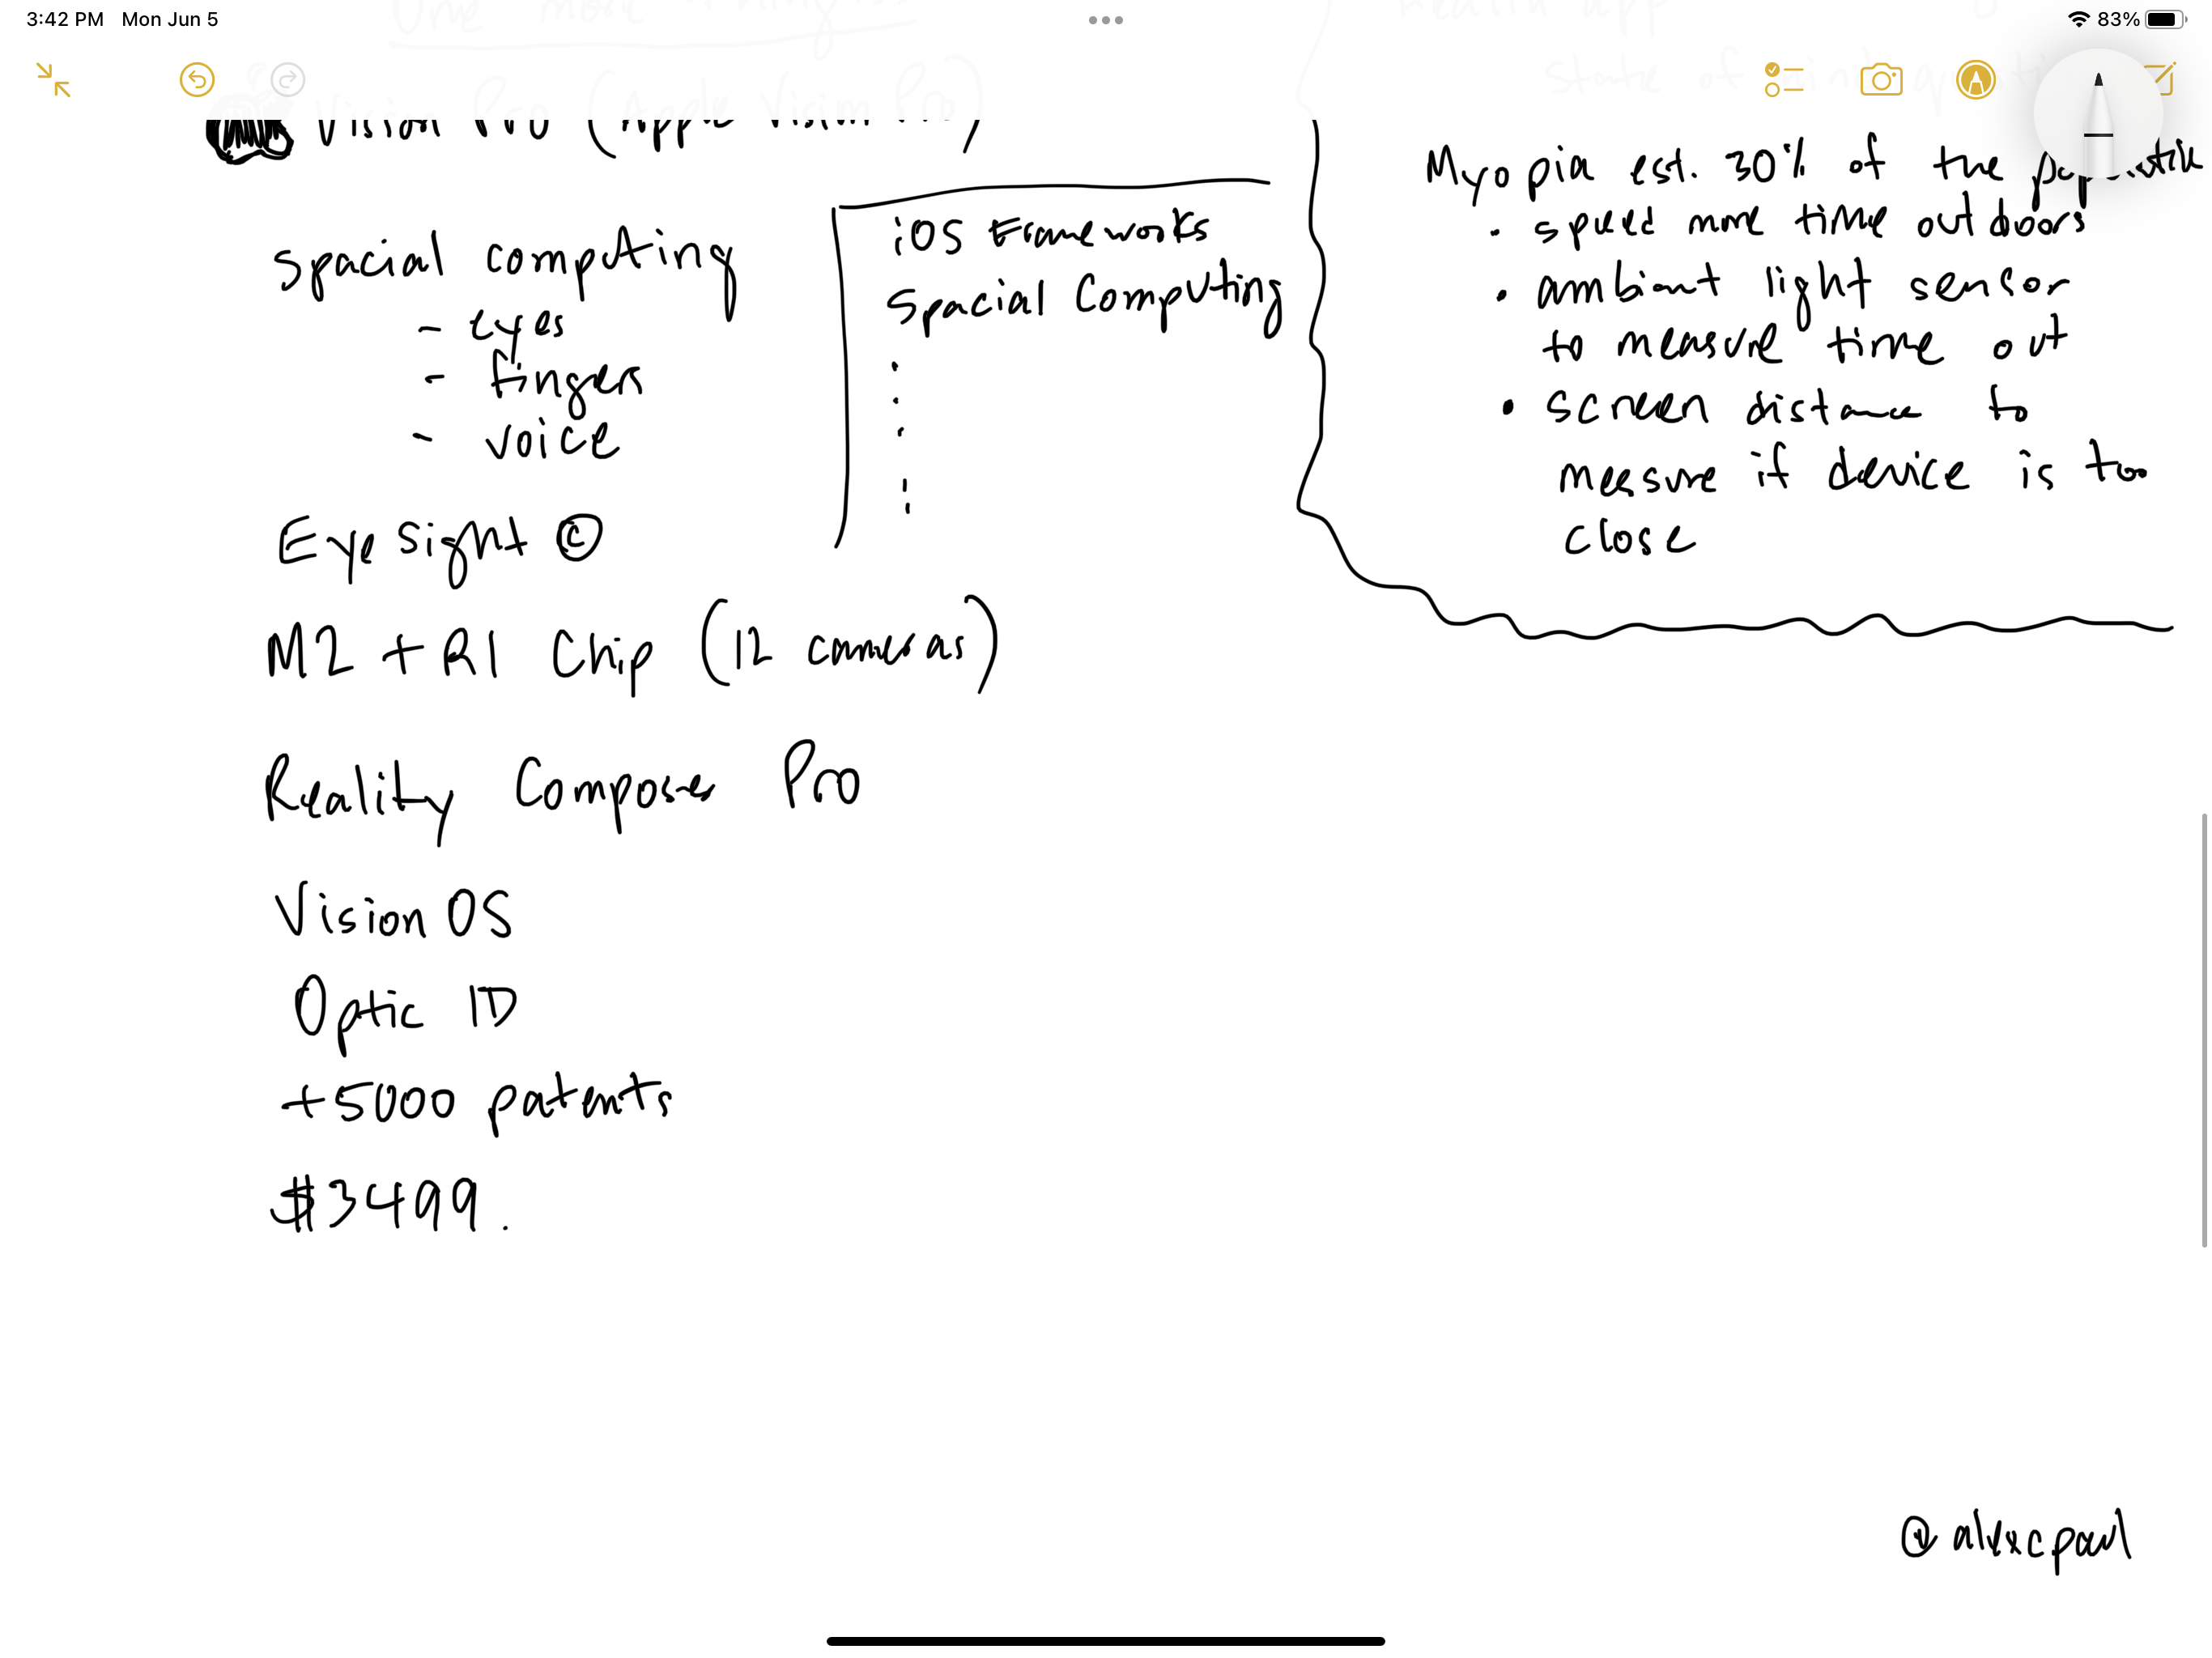 3:42 PM Mon Jun 5
83%
One more thing...
Vision Pro (Apple Vision Pro)
spacial computing
- eyes
- fingers
- voice
EyeSight ©
M2 + R1 Chip (12 cameras)
Reality Composer Pro
Vision OS
Optic ID
+5000 patents
$3499.
iOS Frameworks
Spacial Computing
Health app
State of mind
Myopia est. 30% of the
• speed more time outdoors
• ambiant light sensor
to measure time out
• screen distance to
measure if device is too
close
@alexcpaul